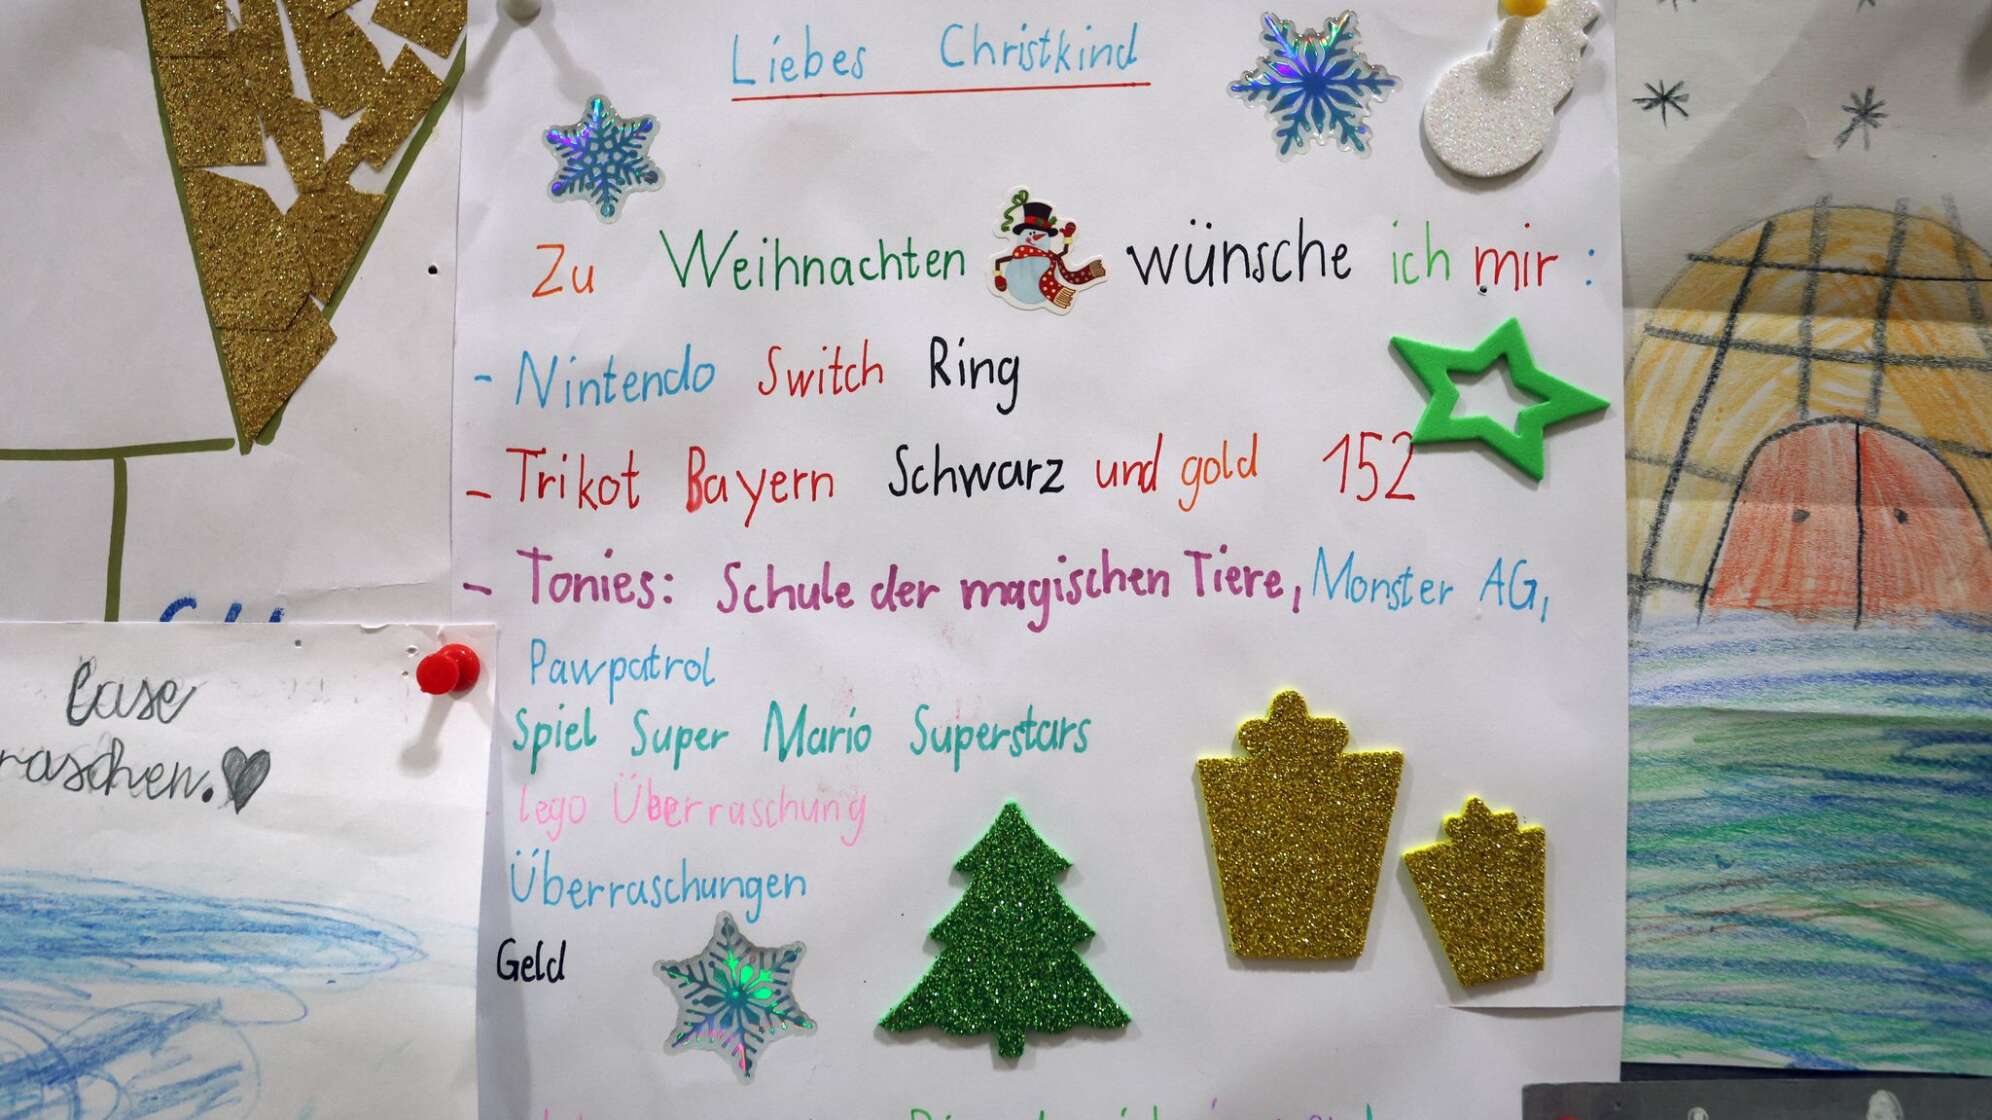 Liebes Christkind
Zu Weihnachten wünsche ich mir:
- Nintendo Switch Ring
- Trikot Bayern Schwarz und gold 152
- Tonies: Schule der magischen Tiere, Monster AG,
Pawpatrol
Spiel Super Mario Superstars
- Lego Überraschung
Überraschungen
Geld